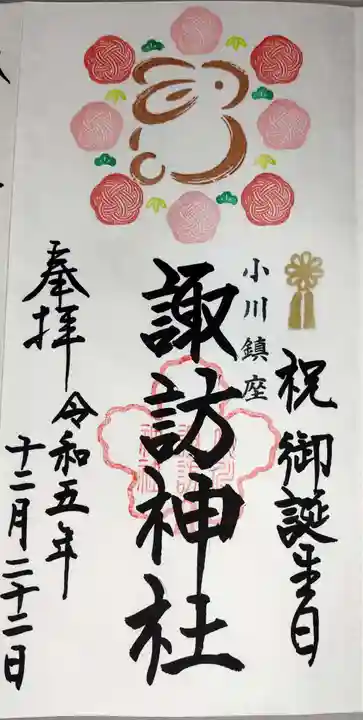 祝御誕生日
小川鎮座
諏訪神社
奉拝
令和五年
十二月二十二日